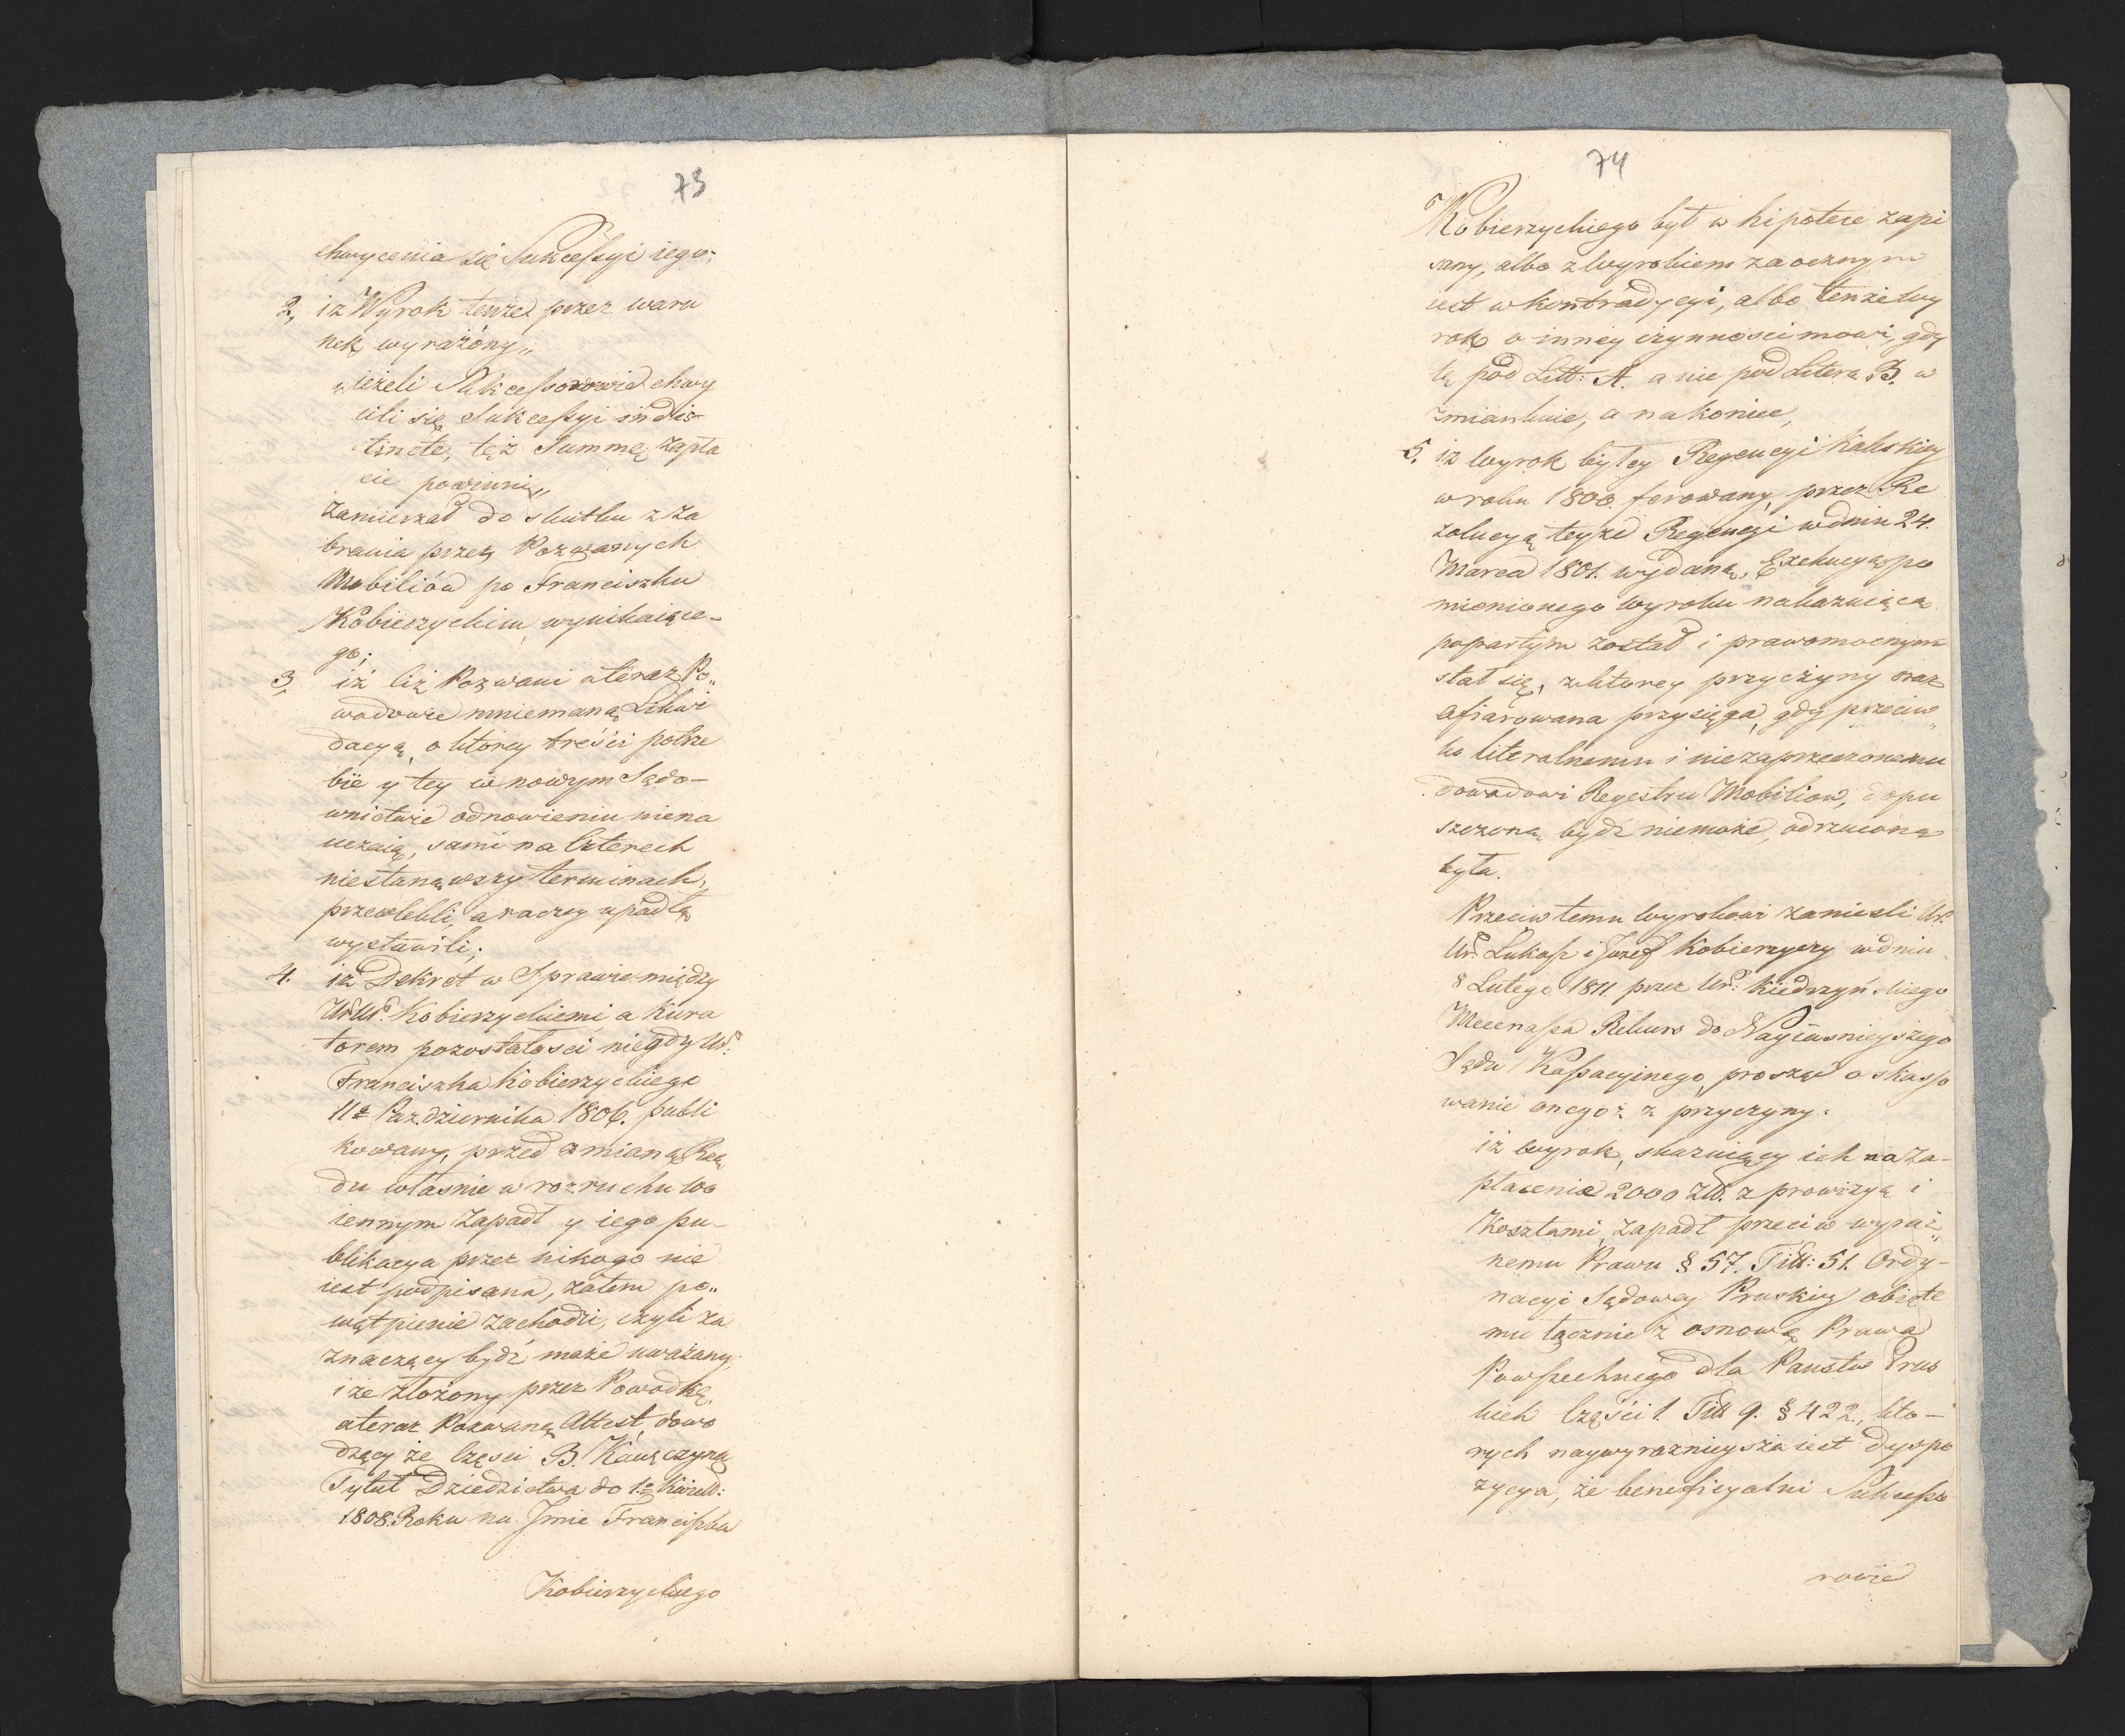 73
chwycenia się Sukceſsyi iego;
2, iż Wyrok tenże przez waru
nek wyrażony„
„ieżeli Sukceſsorowie chwy
cili się Sukceſsyi indis-
tincte, tęż Summę zapła
cić powinni„
zamierzał do skutku z za
brania przez Pozwanych
Mobiliów po Franciszku
Kobierzyckim wynikaiące-
go;
3, iż ciż Pozwani a teraz Po„
wodowie mniemaną Likwi
dacyą, o ktorey treści potrze
bie y tey w nowym Sądo-
wnictwie odnowieniu niena
uczaią, sami na czterech
niestanąwszy terminach,
przewlekli, a raczey upadłą
wystawili;
4. iż Dekret w Sprawie między
UrUr: Kobierzyckiemi a Kura
torem pozostałości niegdy Ur:
Franciszka Kobierzyckiego
11º Pazdziernika 1806. publi
kowany, przed zmianą Rzą
du własnie w rozruchu wo
iennym zapadł y iego pu-
blikacya przez nikogo nie
iest podpisana, zatem po„
wątpienie zachodzi, czyli za
znaczący bydź może uważany,
i że złożony przez Powodkę,
a teraz Pozwaną Attest, dowo
dzący że części B. Kawęczyna
Tytuł Dziedzictwa do 1º Kwied:
1808. Roku na Jmie Franciſzka
Kobierzyckiego
74
Kobierzyckiego był w hipotece zapi
sany, albo z Wyrokiem zaocznym
iest w kontradycyi, albo tenże Wy
rok o inney czynności mowi, gdy
tę pod Litt: A. a nie pod Litera B. w
zmiankuie, a nakoniec,
5. iż Wyrok byłey Regencyi Kaliskiey
w roku 1800. ferowany, przez Re
zolucyą teyże Regencyi w dniu 24.
Marca 1801. wydaną, Exekucyą po
mienionego Wyroku nakazuiącą
popartym został i prawomocnym
stał się, z ktorey przyczyny oraz
ofiarowana przysięga, gdy przeciw„
ko literalnemu i niezaprzeczonemu
dowodowi Regestru Mobiliow, dopu
szczoną bydź niemoże, odrzuconą
była.
Przeciw temu Wyrokowi zanieśli Ur:
Ur: Łukaſz i Jozef Kobierzyccy w dniu
8 Lutego 1811. przez Ur: Kiedrzyńskiego
Mecenaſsa Rekurs do Nayiasnieyszego
Sądu Kaſsacyinego, prosząc o skasso
wanie onegoż z przyczyny:
iż wyrok, skazuiący ich na za-
płacenie 2000 Zł. z prowizyą i
kosztami, zapadł przeciw wyraź„
nemu Prawu § 57. Titt: 51. Ordy-
nacyi Sądowey Pruskiey obięte
mu łącznie z osnową Prawa
Powſzechnego dla Panstw Prus
kich Części 1. Titt 9. § 422., kto-
rych naywyraznieysza iest dyspo
zycya, że beneficyalni Sukceſso
rowie